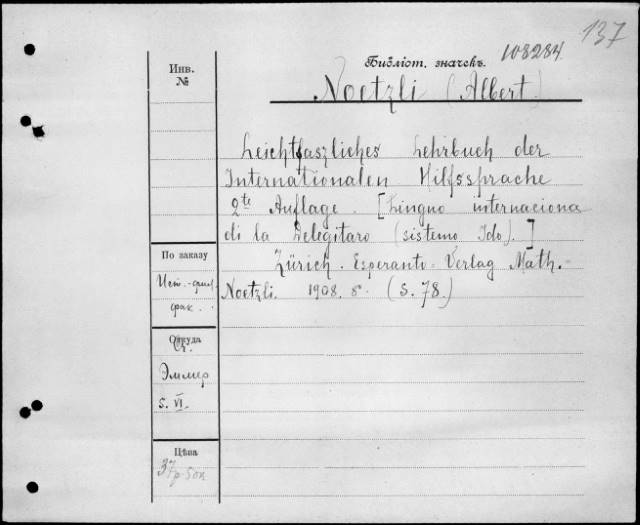 137
108284
Библіот. значекъ.
Инв.
№
Noetzli (Albert)
Leichtfaszliches Lehrbuch der
Internationalen Hilfssprache
2te Auflage. [Linguo internaciona
di la Delegitaro (sistemo Ido).]
Zürich. Esperanto-Verlag Math.-
Noetzli. 1908. 8. (S. 78.)
По заказу
Ист.-фил.
фак.
Откуда
Эммер
5. VI.
Цѣна